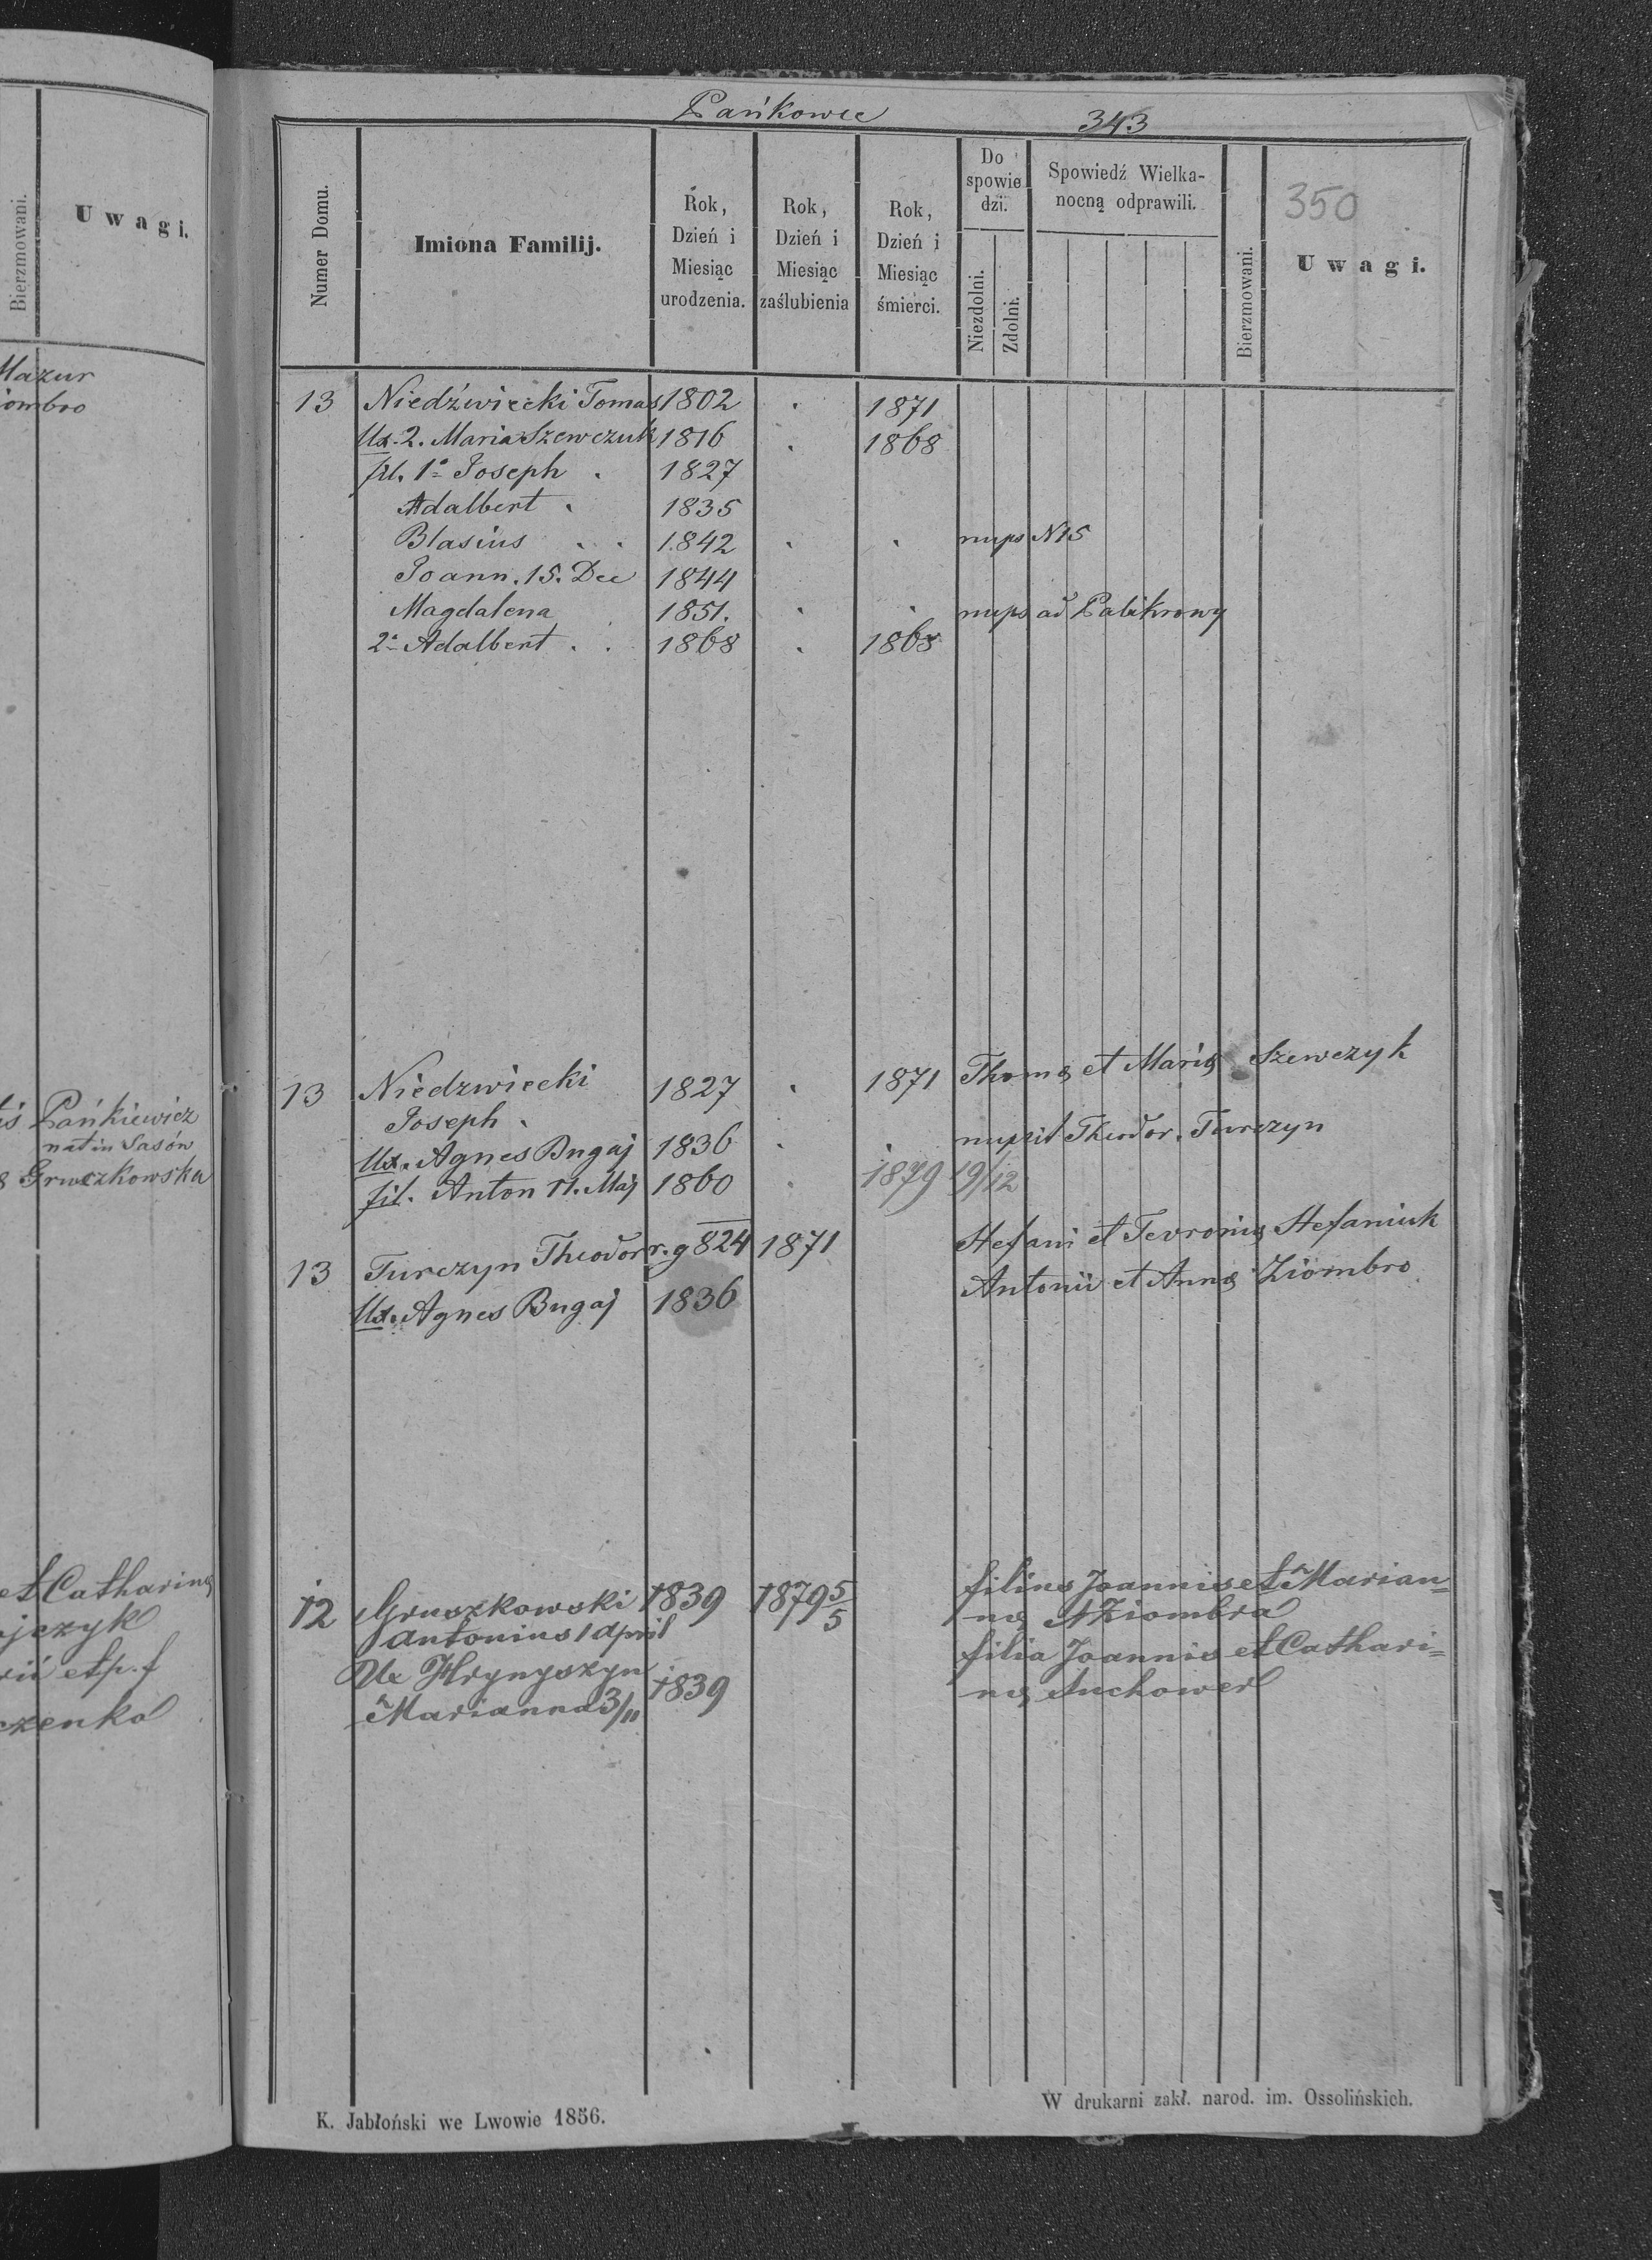 Bierzmowani.
U w a g i.
Mazur
iombro
Pańkiewicz
nat in Sasów
Gruszkowska
et Catharinę
jczyk
rii et p. f
czenko
Pańkowce 343
Numer Domu.
Imiona Familij.
Rok, Dzień i Miesiąc urodzenia.
Rok, Dzień i Miesiąc zaślubienia
Rok, Dzień i Miesiąc śmierci.
Do spowie dzi.
Niezdolni.
Zdolni.
Spowiedź Wielkanocną odprawili.
Bierzmowani.
350
U w a g i.
13 Niedźwiecki Tomas 1802 . 1871
Ux. 2. Maria Szewczuk 1816 . 1868
fil. 1° Joseph . 1827
Adalbert . 1835
Blasius . . 1842 . . nups N15
Joann. 15. Dec 1844
Magdalena 1851. . . nups ad Palikrowy
2° Adalbert . . 1868 . 1868
13 Niedzwiecki 1827 . 1871 Thomę et Marię Szewczyk
Joseph .
Ux. Agnes Bugaj 1836 . . nupsit Theodor. Turczyn
fil. Anton 11. Maj 1860 . 1879 19/12
13 Turczyn Theodor r. g 824 1871 Stefani et Fevronię Stefaniuk
Ux. Agnes Bugaj 1836 Antonii et Annę Ziombro
12 Gruszkowski 1839 1879 5/5 filius Joannis et Marian=
Antonius 1 April nę Ziombra
Ux Hrynyszyn 1839 filia Joannis et Cathari=
Marianna 3/11 nę Suchower
K. Jabłoński we Lwowie 1856.
W drukarni zakł. narod. im. Ossolińskich.